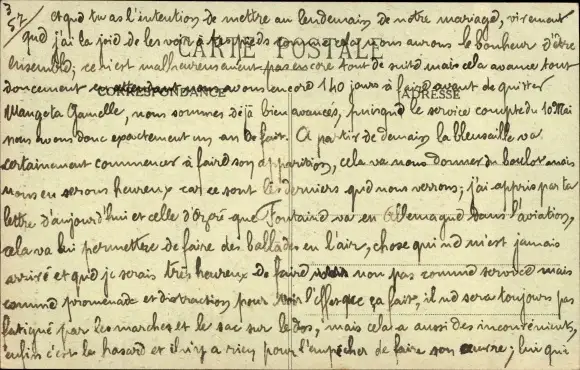 3/57
et que tu as l'intention de mettre au lendemain de notre mariage, vivement
que j'ai la joie de les voir à tes pieds car cela nous aurons le bonheur d'être
CARTE POSTALE
ensemble; ce n'est malheureusement pas encore tout de suite mais cela avance tout
doucement en attendant nous avons encore 140 jours à faire avant de quitter
CORRESPONDANCE
ADRESSE
Mangeta Gamelle, nous sommes déjà bien avancés, puisque le service compte du 10 Mai
nous avons donc exactement un an de fait. A partir de demain la bleusaille va
certainement commencer à faire son apparition, cela va nous donner du boulot mais
nous en serons heureux car ce sont les derniers que nous verrons; j'ai appris par ta
lettre d'aujourd'hui et celle d' que Fontaine va en Allemagne dans l'aviation,
cela va lui permettre de faire des ballades en l'air, chose qui ne m'est jamais
arrivé et que je serais très heureux de faire non pas comme service mais
comme promenade et distraction pour voir l'effet que ça fait, il ne sera toujours pas
fatigué par les marches et le sac sur le dos, mais cela a aussi des inconvénients,
enfin c'est le hasard et il n'y a rien pour l'empêcher de faire son œuvre; lui qui